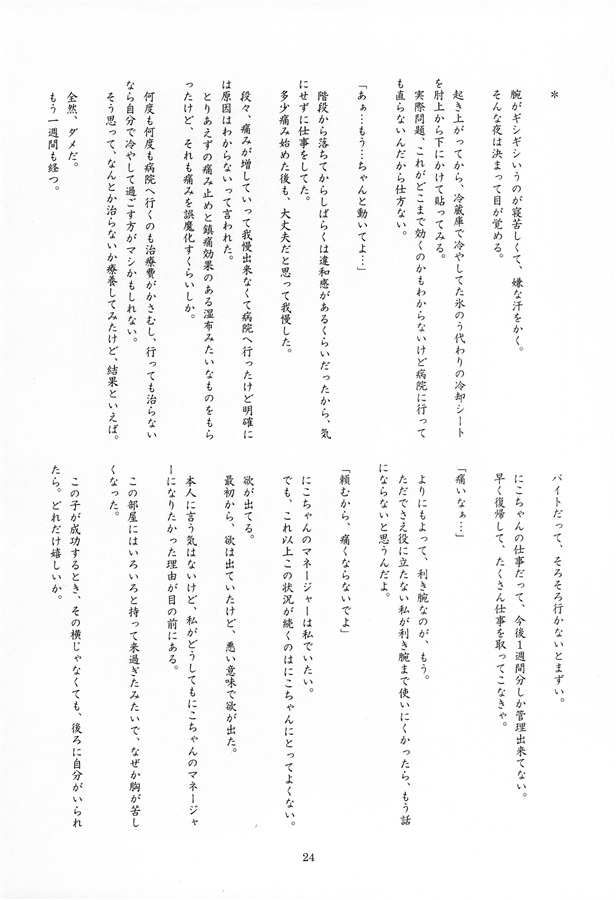 ＊
腕がギシギシいうのが寝苦しくて、嫌な汗をかく。
そんな夜は決まって目が覚める。
起き上がってから、冷蔵庫で冷やしてた氷のう代わりの冷却シート
を肘上から下にかけて貼ってみる。
実際問題、これがどこまで効くのかもわからないけど病院に行って
も直らないんだから仕方ない。
「あぁ…もう…ちゃんと動いてよ…」
階段から落ちてからしばらくは違和感があるくらいだったから、気
にせずに仕事をしてた。
多少痛み始めた後も、大丈夫だと思って我慢した。
段々、痛みが増していって我慢出来なくて病院へ行ったけど明確に
は原因はわからないって言われた。
とりあえずの痛み止めと鎮痛効果のある湿布みたいなものをもら
ったけど、それも痛みを誤魔化すくらいしか。
何度も何度も病院へ行くのも治療費がかさむし、行っても治らない
なら自分で冷やして過ごす方がマシかもしれない。
そう思って、なんとか治らないか療養してみたけど、結果といえば。
全然、ダメだ。
もう一週間も経つ。
バイトだって、そろそろ行かないとまずい。
にこちゃんの仕事だって、今後１週間分しか管理出来てない。
早く復帰して、たくさん仕事を取ってこなきゃ。
「痛いなぁ…」
よりにもよって、利き腕なのが、もう。
ただでさえ役に立たない私が利き腕まで使いにくかったら、もう話
にならないと思うんだよ。
「頼むから、痛くならないでよ」
にこちゃんのマネージャーは私でいたい。
でも、これ以上この状況が続くのはにこちゃんにとってよくない。
欲が出てる。
最初から、欲は出ていたけど、悪い意味で欲が出た。
本人に言う気はないけど、私がどうしてもにこちゃんのマネージャ
ーになりたかった理由が目の前にある。
この部屋にはいろいろと持って来過ぎたみたいで、なぜか胸が苦し
くなった。
この子が成功するとき、その横じゃなくても、後ろに自分がいられ
たら。どれだけ嬉しいか。
24